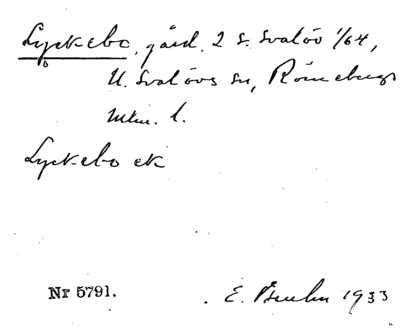 Lyckebo, gård, 2 S. Svalöv 1/64,
U. Svalövs sn, Rönnebergs
Lyckebo ek
Nr 5791. E. 1933